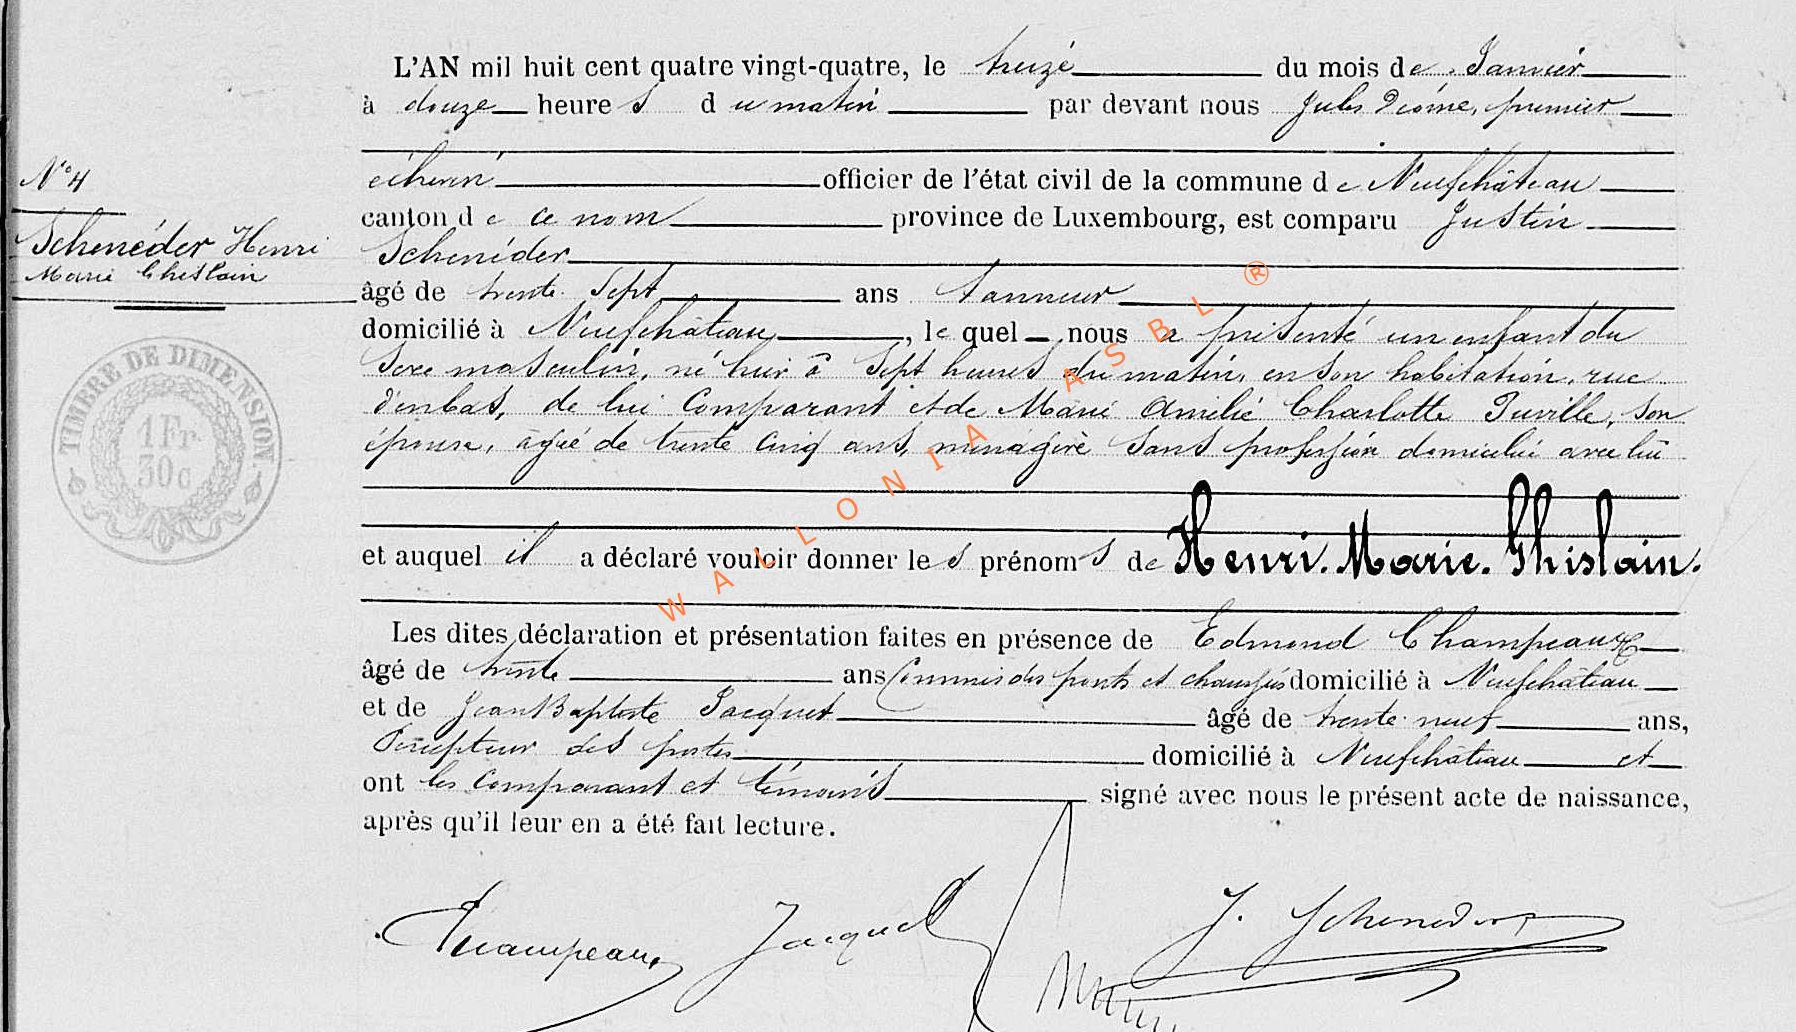 L'AN mil huit cent quatre vingt-quatre, le treize du mois de Janvier
à douze heures du matin par devant nous Jules premier
N° 4
échevin officier de l'état civil de la commune de Neufchâteau
canton de ce nom province de Luxembourg, est comparu Justin
Schenéder Henri
Marie Ghislain
Schenéder
âgé de trente sept ans tanneur
domicilié à Neufchâteau, lequel nous a présenté un enfant du
sexe masculin, né hier à sept heures du matin, en son habitation, rue
d'enbas, de lui Comparant et de Marie Amélie Charlotte son
épouse, âgée de trente cinq ans, ménagère sans profession domiciliée avec lui
et auquel il a déclaré vouloir donner les prénoms de Henri. Marie. Ghislain.
Les dites déclaration et présentation faites en présence de Edmond Champeaux
âgé de trente ans Commis des ponts et chaussées domicilié à Neufchâteau
et de Jean Baptiste Jacquet âgé de trente neuf ans,
Percepteur des postes domicilié à Neufchâteau et
ont les Comparant et témoins signé avec nous le présent acte de naissance,
après qu'il leur en a été fait lecture.
Champeaux Jacquet J. Scheneder
TIMBRE DE DIMENSION.
1 Fr
30c
WALLONIA ASBL ®